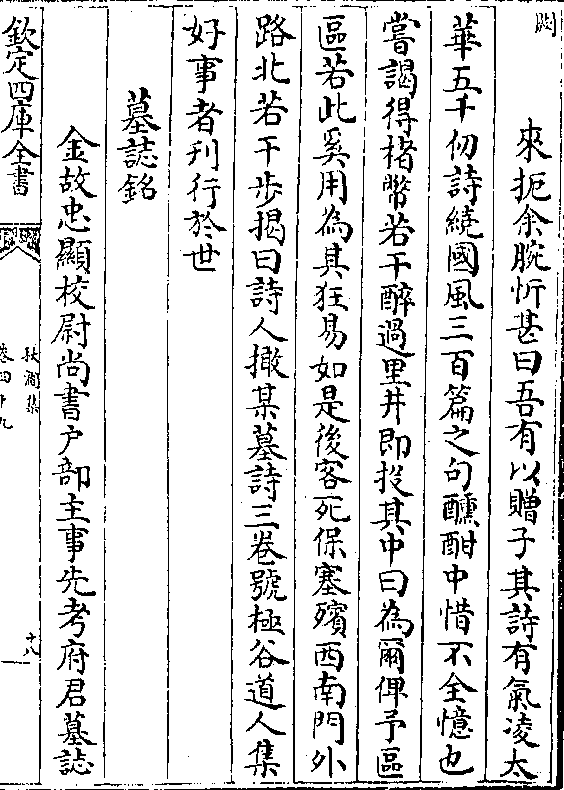 闕
來扼余腕忻甚曰吾有以贈子其詩有氣凌太
華五千仞詩繞國風三百篇之句醺酣中惜不全憶也
嘗謁得楮幣若干醉過里井即投其中曰為爾俾予區
區若此奚用為其狂易如是後客死保塞殯西南門外
路北若干步揭曰詩人撖某墓詩三卷號極谷道人集
好事者刊行於世
墓誌銘
金故忠顯校尉尚書户部主事先考府君墓誌
欽定四庫全書
秋澗集
卷四十九
十八